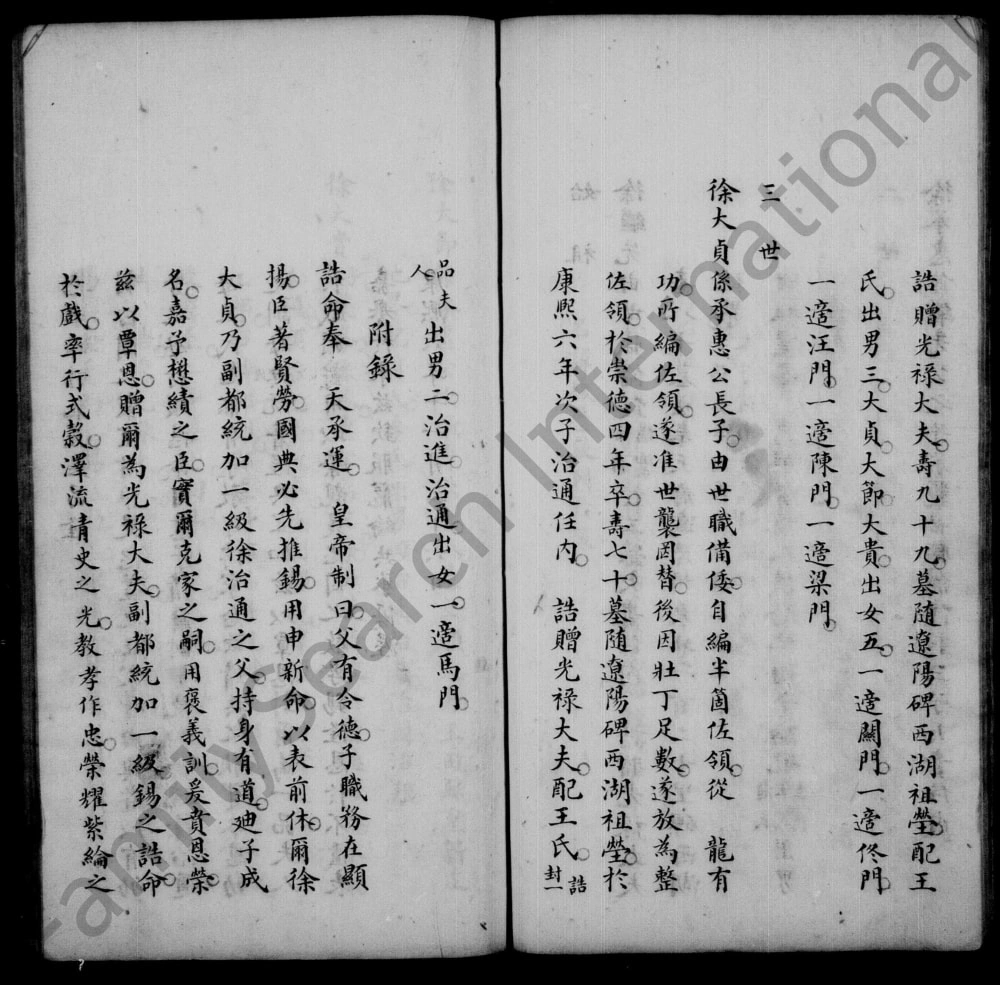 誥贈光祿大夫○壽九十九○墓隨遼陽碑西湖祖塋○配王
氏○出男三○大貞○大節大貴○出女五○一適關門○一適佟門○
一適汪門○一適陳門○一適梁門○
三世
徐大貞係承惠公長子○由世職備倭○自編半箇佐領從 龍有
功○所編佐領○遂准世襲罔替○後因壯丁足數○遂放為整
佐領○於崇德四年卒○壽七十○墓隨遼陽碑西湖祖塋○於
康熙六年次子治通任內○ 誥贈光祿大夫○配王氏○誥封一
品夫人○出男二○治進○治通○出女一○適馬門○
附錄
誥命奉 天承運○ 皇帝制曰○父有令德○子職務在顯
揚○臣著賢勞○國典必先推錫○用申新命○以表前休○爾徐
大貞○乃副都統加一級徐治通之父○持身有道○廸子成
名○嘉予懋績之臣○實爾克家之嗣○用褒義訓○爰賁恩榮○
茲以覃恩○贈爾為光祿大夫○副都統加一級○錫之誥命○
於戲○率行式穀○澤流青史之光○教孝作忠○榮耀紫綸之
FamilySearch International